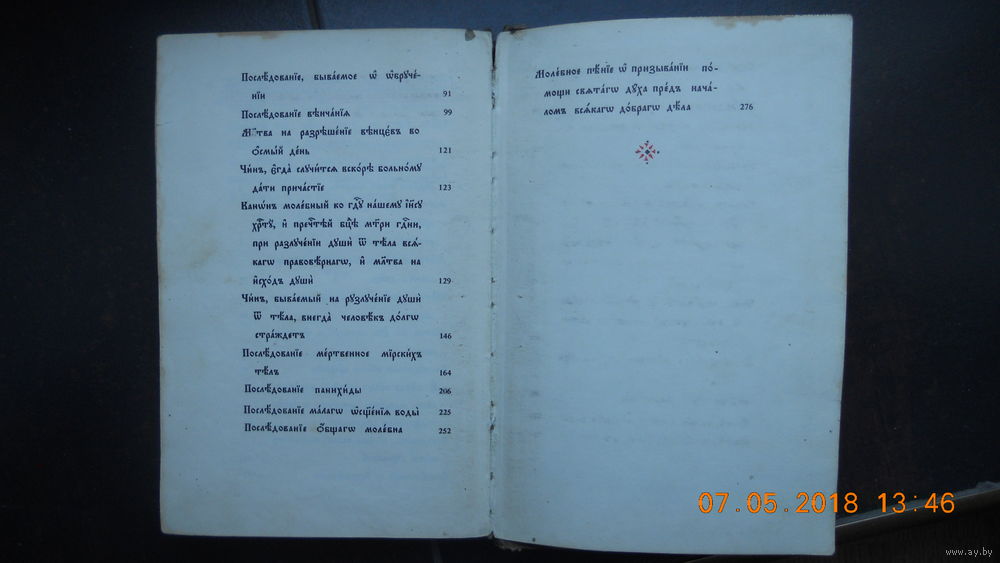 Послѣ́дованїе, быва́емое ѡ҆ ѡ҆брꙋче́-
нїи 91
Послѣ́дованїе вѣнча́нїѧ 99
Мл҃тва на разрѣше́нїе вѣнцє́въ во
ѻ҆смы́й де́нь 121
Чи́нъ, є҆гда̀ слꙋчи́тсѧ вско́рѣ больно́мꙋ
да́ти прича́стїе 123
Канѡ́нъ моле́бный ко гдⷭ҇ꙋ на́шемꙋ і҆и҃сꙋ
хрⷭ҇тꙋ̀, и҆ пречⷭ҇тѣй бц҃ѣ мт҃ри гдⷭ҇ни,
при разлꙋче́нїи дꙋшѝ ѿ тѣ́ла всѧ́-
кагѡ правовѣ́рнагѡ, и҆ мл҃тва на
и҆схо́дъ дꙋшѝ 129
Чи́нъ, быва́емый на рꙋзлꙋче́нїе дꙋшѝ
ѿ тѣ́ла, внегда̀ человѣ́къ до́лгѡ
стра́ждетъ 146
Послѣ́дованїе ме́ртвенное мїрски́хъ
тѣ́лъ 164
Послѣ́дованїе паннихи́ды 206
Послѣ́дованїе ма́лагѡ ѡ҆сщ҃е́нїѧ воды̀ 225
Послѣ́дованїе ѻ҆́бщагѡ моле́бна 252
Моле́бное пѣ́нїе ѡ҆ призыва́нїи по́-
мощи свѧта́гѡ дꙋ́ха пре́дъ нача́-
ломъ всѧ́кагѡ до́брагѡ дѣ́ла 276
07.05.2018 13:46
www.ay.by